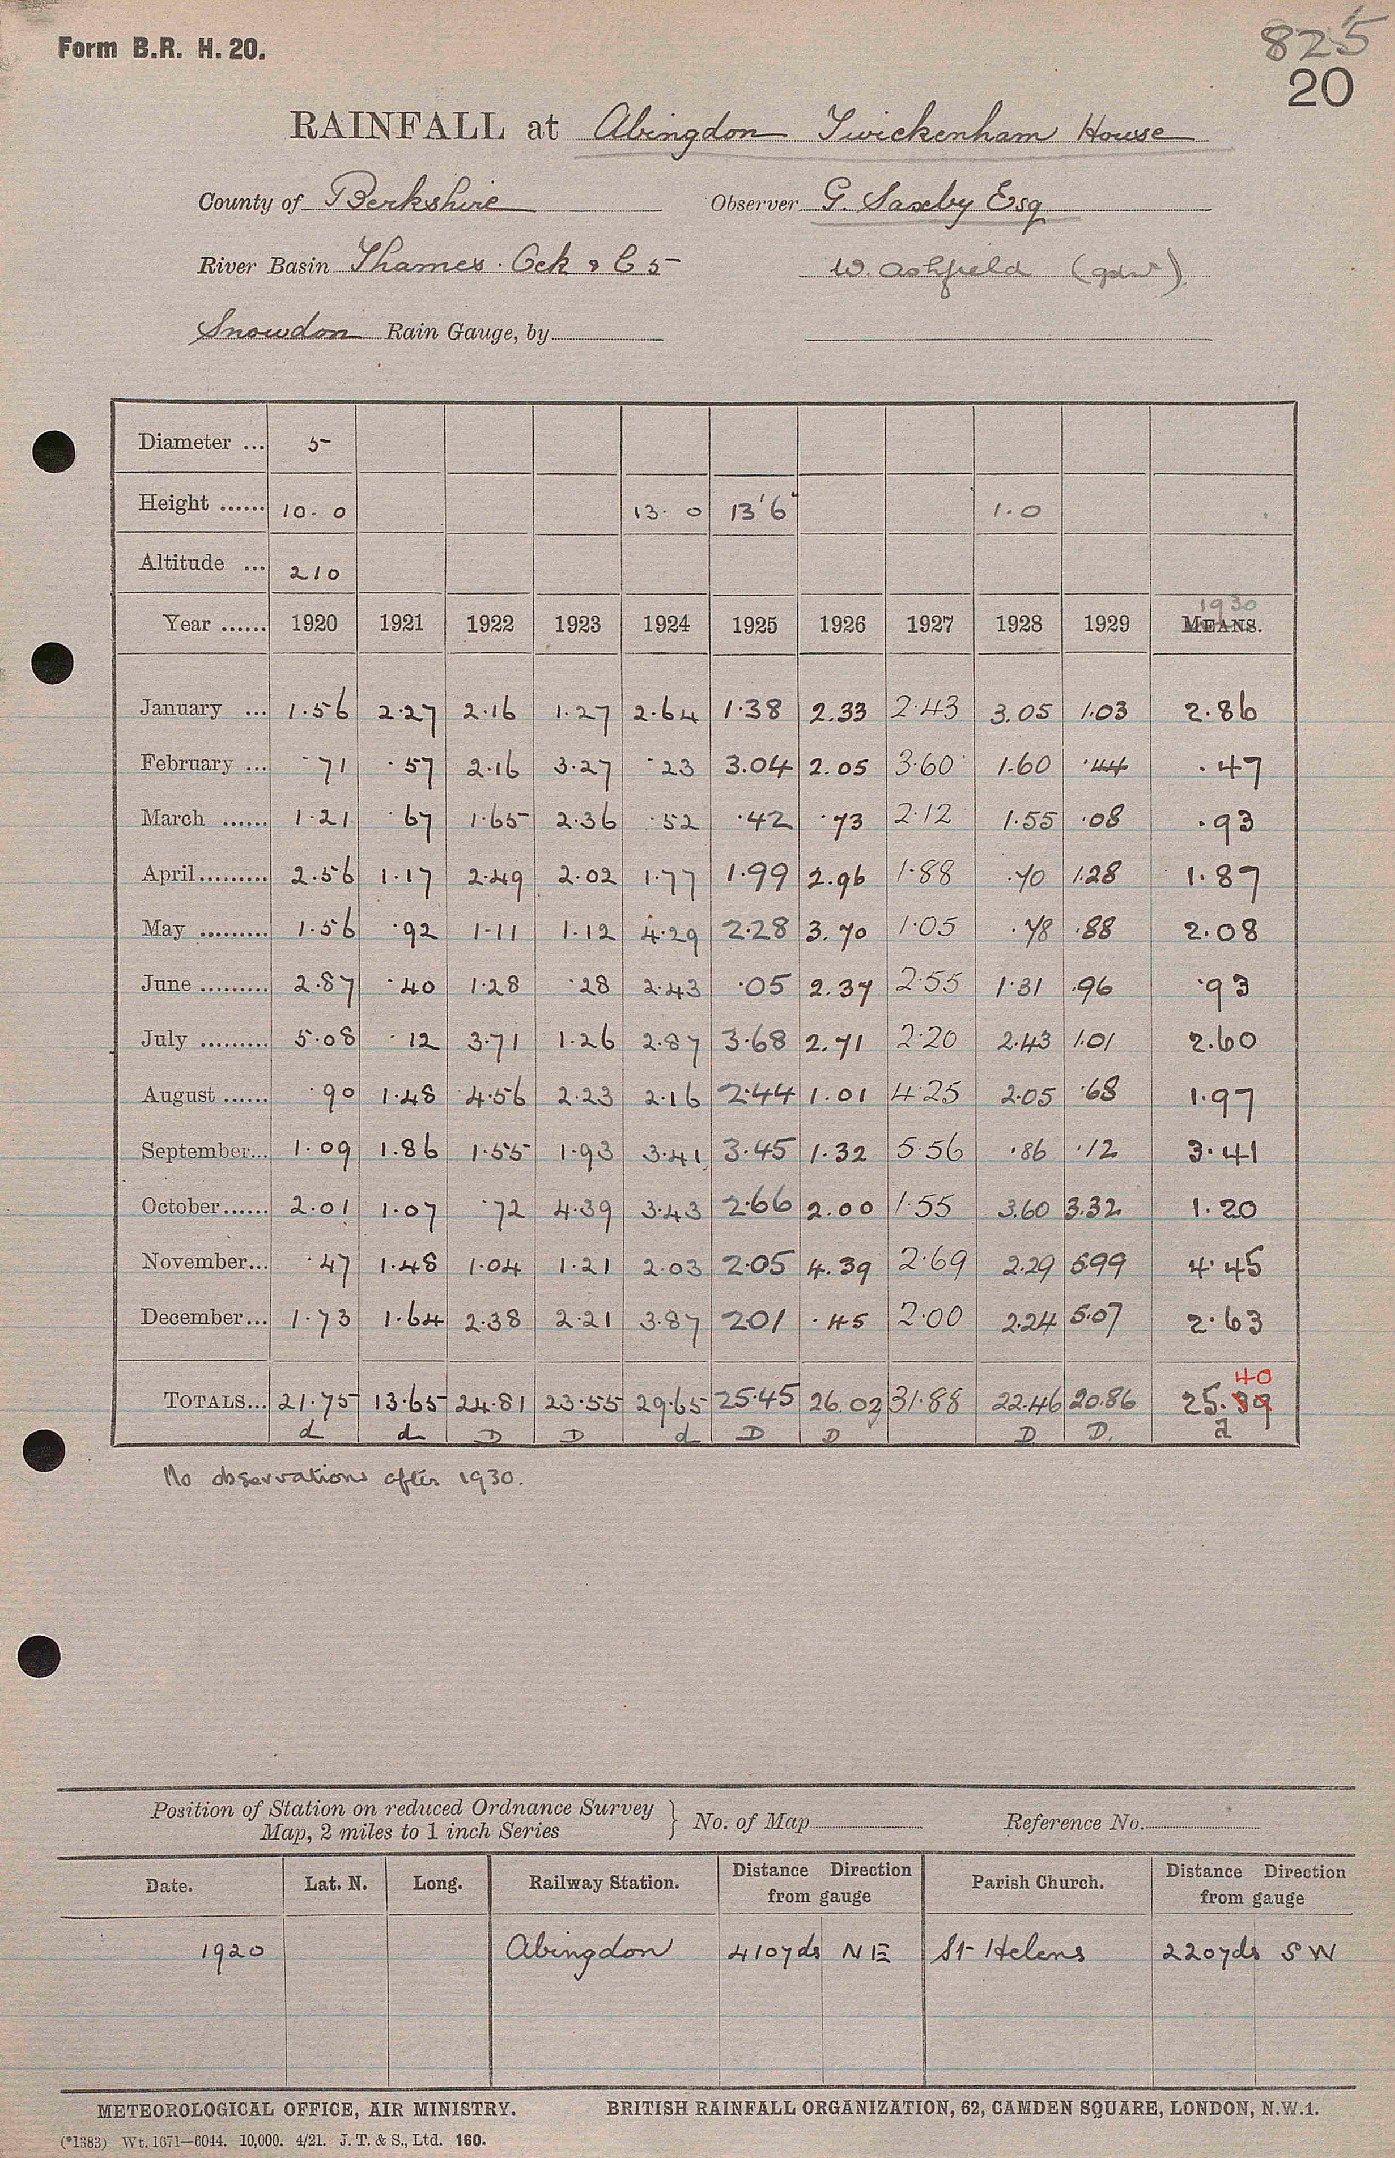 Form B.R. H. 20.
825
20
RAINFALL at Abingdon Twickenham House
County of Berkshire Observer G. Saxby Esq
River Basin Thames. Ock & C 5 W. Ashfield (gdnr).
Snowdon Rain Gauge, by
Diameter ... 5
Height ...... 10. 0 13. 0 13'6" 1.0
Altitude ... 210
1930
Year ...... 1920 1921 1922 1923 1924 1925 1926 1927 1928 1929 MEANS.
January ... 1.56 2.27 2.16 1.27 2.64 1.38 2.33 2.43 3.05 1.03 2.86
February ... .71 .57 2.16 3.27 .23 3.04 2.05 3.60 1.60 .44 .47
March ...... 1.21 .67 1.65 2.36 .52 .42 .73 2.12 1.55 .08 .93
April......... 2.56 1.17 2.49 2.02 1.77 1.99 2.96 1.88 .70 1.28 1.87
May ......... 1.56 .92 1.11 1.12 4.29 2.28 3.70 1.05 .78 .88 2.08
June ......... 2.87 .40 1.28 .28 2.43 .05 2.37 2.55 1.31 .96 .93
July ......... 5.08 .12 3.71 1.26 2.87 3.68 2.71 2.20 2.43 1.01 2.60
August ...... .90 1.48 4.56 2.23 2.16 2.44 1.01 4.25 2.05 .68 1.97
September... 1.09 1.86 1.55 1.93 3.41 3.45 1.32 5.56 .86 .12 3.41
October...... 2.01 1.07 .72 4.39 3.43 2.66 2.00 1.55 3.60 3.32 1.20
November... .47 1.48 1.04 1.21 2.03 2.05 4.39 2.69 2.29 5.99 4.45
December... 1.73 1.64 2.38 2.21 3.87 2.01 .45 2.00 2.24 5.07 2.63
40
TOTALS... 21.75 13.65 24.81 23.55 29.65 25.45 26.02 31.88 22.46 20.86 25.39
d d D D d D D D D. d
No observations after 1930.
Position of Station on reduced Ordnance Survey
Map, 2 miles to 1 inch Series } No. of Map Reference No.
Date. Lat. N. Long. Railway Station. Distance Direction from gauge Parish Church. Distance Direction from gauge
1920 Abingdon 410yds NE St Helens 220yds SW
METEOROLOGICAL OFFICE, AIR MINISTRY. BRITISH RAINFALL ORGANIZATION, 62, CAMDEN SQUARE, LONDON, N.W.1.
(*1383) Wt. 1671—6044. 10,000. 4/21. J. T. & S., Ltd. 160.